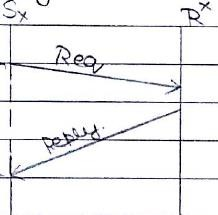 Sx Rx
Req
reply.